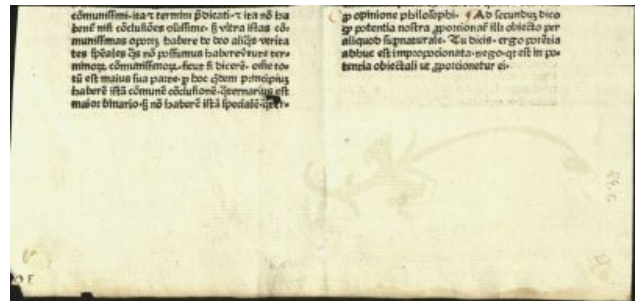 cōmunissimi·ita ⁊ termini p̄dicati·⁊ ita nō ha
bent nisi cōclusiões cōissime· s̄ vltra istas cō
munissimas oportꝫ habere de deo aliq̄s verita
tes sp̄ales q̄s nō possumus habere ex
minoꝝ cōmunissimoꝝ·sicut si dicerē· oē̄ to
tū est maius sua parte· ꝑ hoc principiuꝫ
haberē istā cōmunē cōclusionē·q̄ternarius est
maior binario·s̄ nō haberē istā sp̄ealē·
ꝙ opinione philosophi· ¶ Ad secunduꝫ dico
ꝙ potentia nostra ꝓporcionat̄ illi obiecto per
aliquod suꝑnaturale· Tu dicis· ergo potētia
adhuc est improporcionata·nego·qꝛ est in po
tentia obiectali ut ꝓporcionetur ei·